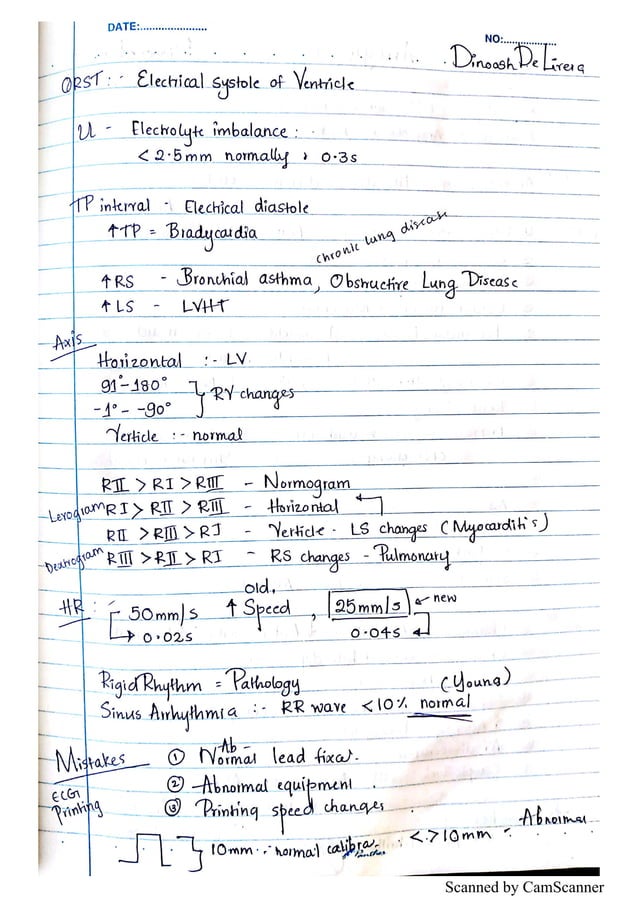 DATE:........................
NO:..................
Dinoosh De Livera
QRST :- Electrical systole of Ventricle
U - Electrolyte imbalance :
< 2.5mm normally , 0.3s
TP interval - Electical diastole
↑TP = Bradycardia
chronic lung disease
↑RS - Bronchial asthma, Obstructive Lung Disease
↑LS - LVHT
Axis
Horizontal :- LV
91°-180°
-1° - -90° } RV changes
Verticle :- normal
RII > RI > RIII - Normogram
Levogram RI > RII > RIII - Horizontal
RII > RIII > RI - Verticle - LS changes (Myocarditis)
Dextrogram RIII > RII > RI - RS changes - Pulmonary
old,
HR : 50mm/s ↑ Speed , 25mm/s ← new
→ 0.02s 0.04s
Rigid Rhythm = Pathology (Young)
Sinus Arrhythmia :- RR wave <10% normal
Mistakes ① Ab-Normal lead fixa.
ECG ② Abnormal equipment .
Printing ③ Printing speed changes
10mm :. normal calibra. < > 10mm - Abnormal
Scanned by CamScanner